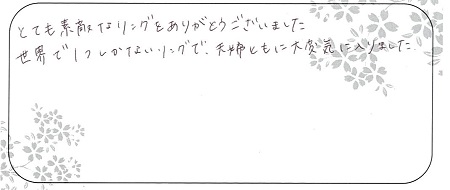 とても素敵なリングをありがとうございました
世界で1つしかないリングで、夫婦ともに大変気に入りました